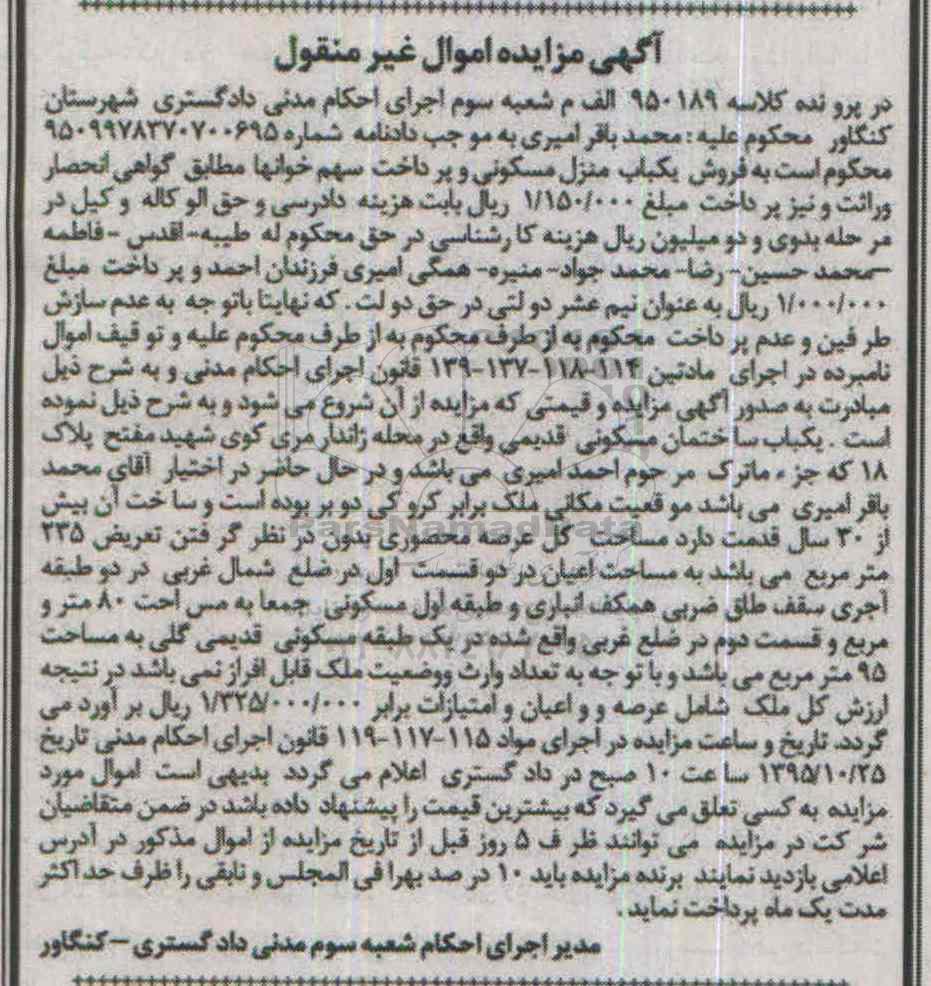 آگهی مزایده اموال غیر منقول
در پرو نده کلاسه ۹۵۰۱۸۹ الف م شعبه سوم اجرای احکام مدنی دادگستری شهرستان
کنگاور محکوم علیه : محمد باقر امیری به مو جب دادنامه شماره ۹۵۰۹۹۷۸۳۷۰۷۰۰۶۹۵
محکوم است به فروش یکباب منزل مسکونی و پر داخت سهم خوانها مطابق گواهی انحصار
وراثت و نیز پر داخت مبلغ ۱/۱۵۰/۰۰۰ ریال بابت هزینه دادرسی و حق الو کاله و کیل در
مر حله بدوی و دو میلیون ریال هزینه کا رشناسی در حق محکوم له طیبه- اقدس -فاطمه
-محمد حسین- رضا- محمد جواد- منیره- همگی امیری فرزندان احمد و پر داخت مبلغ
۱/۰۰۰/۰۰۰ ریال به عنوان نیم عشر دو لتی در حق دو لت . که نهایتا باتو جه به عدم سازش
طر فین و عدم پر داخت محکوم به از طرف محکوم به از طرف محکوم علیه و تو قیف اموال
نامبرده در اجرای مادتین ۱۱۴-۱۱۸-۱۳۷-۱۳۹ قانون اجرای احکام مدنی و به شرح ذیل
مبادرت به صدور آگهی مزایده و قیمتی که مزایده از آن شروع می شود و به شرح ذیل نموده
است . یکباب سا ختمان مسکونی قدیمی واقع در محله ژاندار مری کوی شهید مفتح پلاک
۱۸ که جز ء ماترک مر حوم احمد امیری می باشد و در حال حاضر در اختیار آقای محمد
باقر امیری می باشد مو قعیت مکانی ملک برابر کرو کی دو بر بوده است و سا خت آن بیش
از ۳۰ سال قدمت دارد مساحت کل عرصه محصوری بدون در نظر گر فتن تعریض ۲۳۵
متر مربع می باشد به مساحت اعیان در دو قسمت اول در ضلع شمال غربی در دو طبقه
آجری سقف طاق ضربی همکف انباری و طبقه اول مسکونی جمعا به مس احت ۸۰ متر و
مربع و قسمت دوم در ضلع غربی واقع شده در یک طبقه مسکونی قدیمی گلی به مساحت
۹۵ متر مربع می باشد و با تو جه به تعداد وارث ووضعیت ملک قابل افراز نمی باشد در نتیجه
ارزش کل ملک شامل عرصه و و اعیان و امتیازات برابر ۱/۳۲۵/۰۰۰/۰۰۰ ریال بر آورد می
گردد. تاریخ و ساعت مزایده در اجرای مواد ۱۱۵-۱۱۷-۱۱۹ قانون اجرای احکام مدنی تاریخ
۱۳۹۵/۱۰/۲۵ سا عت ۱۰ صبح در داد گستری اعلام می گردد بدیهی است اموال مورد
مزایده به کسی تعلق می گیرد که بیشترین قیمت را پیشنهاد داده باشد در ضمن متقاضیان
شر کت در مزایده می توانند ظر ف ۵ روز قبل از تاریخ مزایده از اموال مذکور در آدرس
اعلامی بازدید نمایند برنده مزایده باید ۱۰ در صد بهرا فی المجلس و نابقی را ظرف حد اکثر
مدت یک ماه پرداخت نماید .
مدیر اجرای احکام شعبه سوم مدنی داد گستری -کنگاور
ParsNamadData